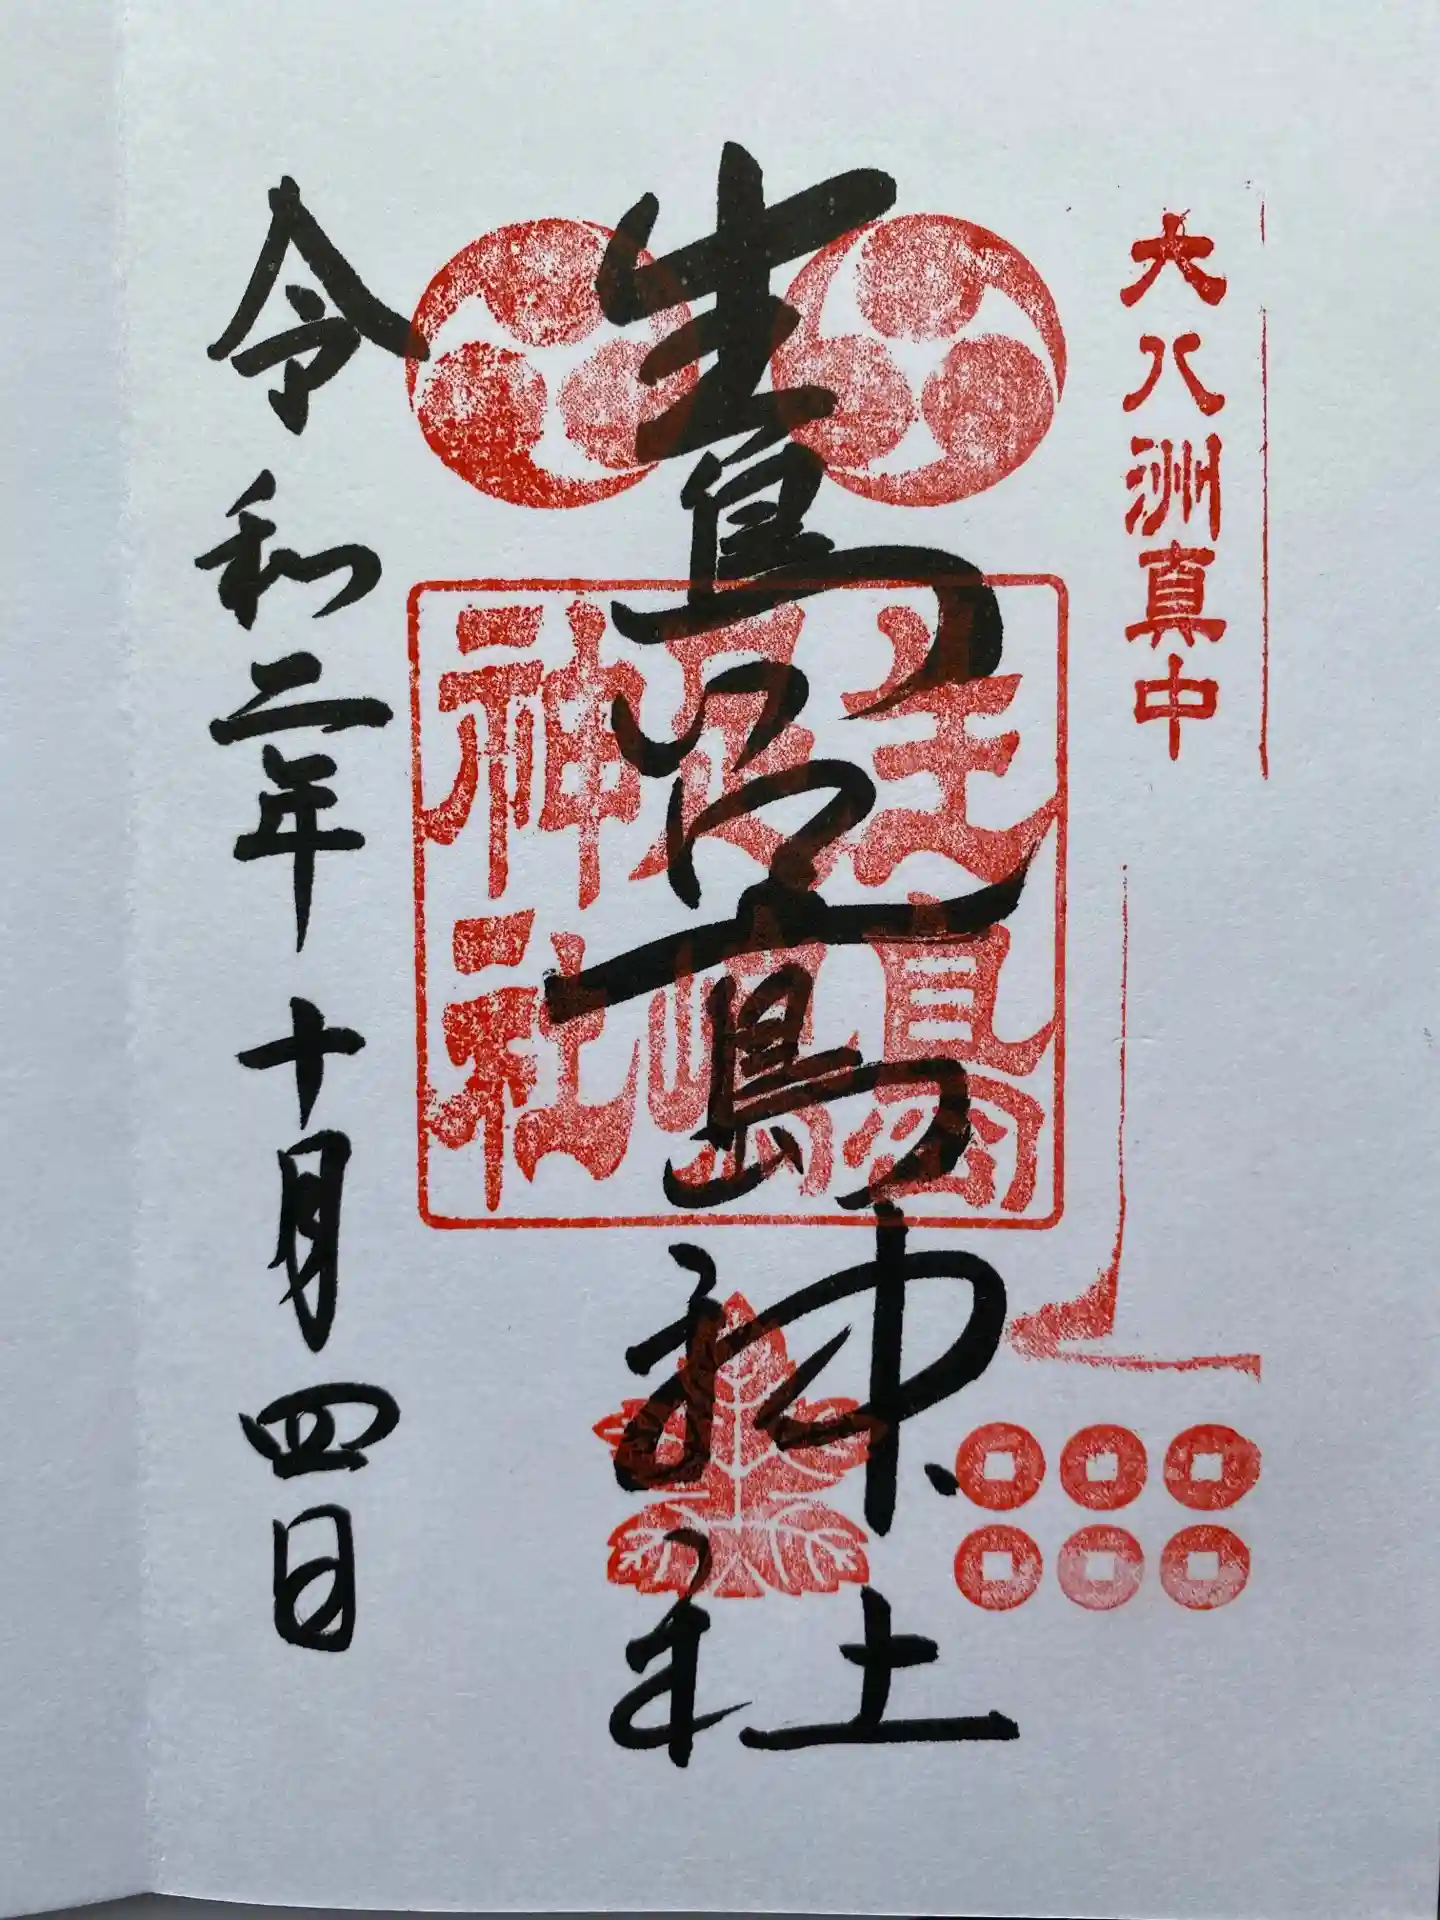 大八洲真中
生島足島神社
生島
足嶋
神社
令和二年十月四日